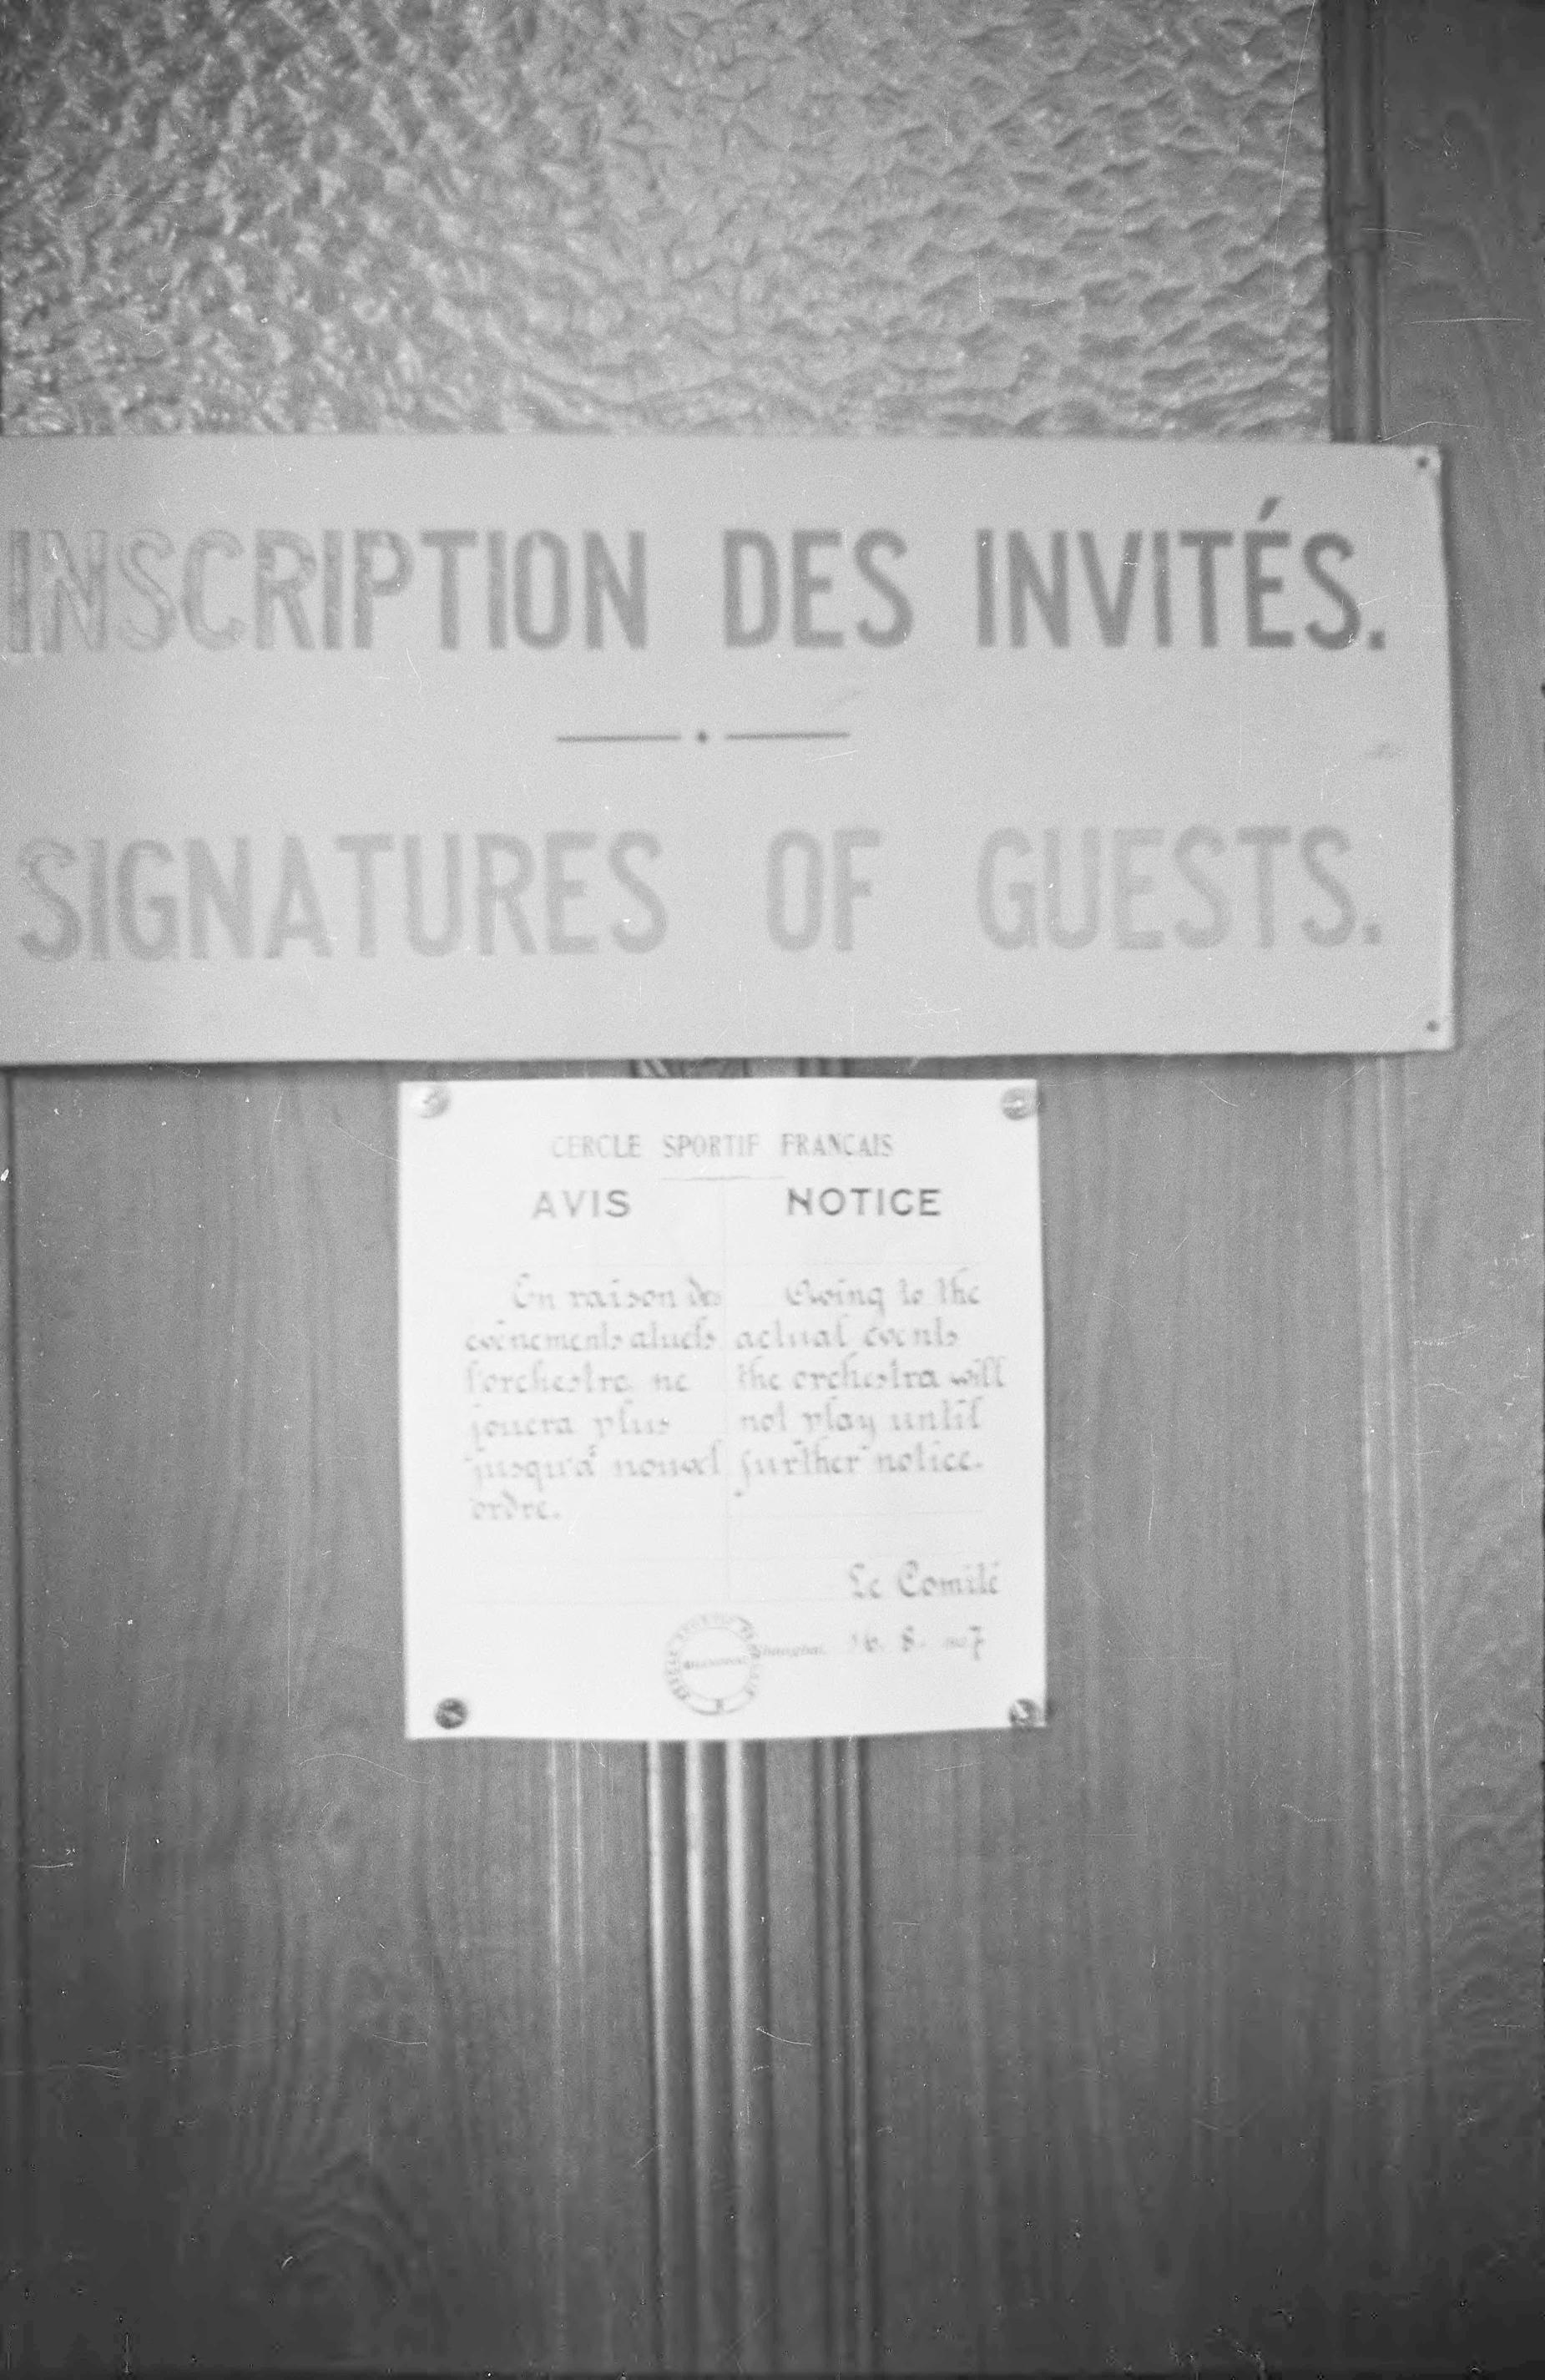 INSCRIPTION DES INVITÉS.
SIGNATURES OF GUESTS.
CERCLE SPORTIF FRANCAIS
AVIS
En raison des
evènements atuels
l'orchestre ne
jouera plus
jusqu'à nouvel
ordre.
NOTICE
Owing to the
actual events
the orchestra will
not play until
further notice.
Le Comité
Shanghai, 16. 8.